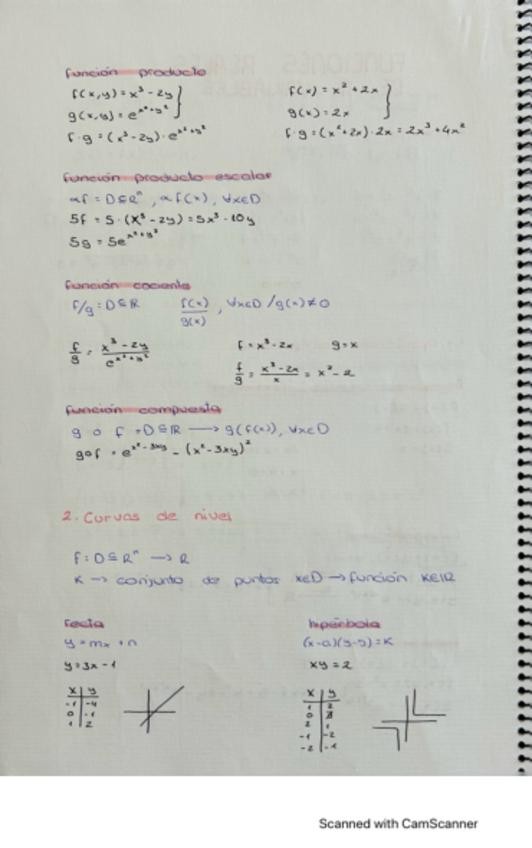 función producto
f(x,y) = x³ - 2y }
g(x,y) = e^(x²+y²)
f·g = (x³-2y)·e^(x²+y²)
f(x) = x² + 2x }
g(x) = 2x
f·g = (x²+2x)·2x = 2x³+4x²
función producto escalar
αf = D⊆Rⁿ, αf(x), ∀x∈D
5f = 5·(x³-2y) = 5x³-10y
5g = 5e^(x²+y²)
función cociente
f/g : D⊆R f(x)/g(x), ∀x∈D / g(x)≠0
f/g = (x³-2y)/e^(x²+y²)
f = x³-2x g = x
f/g = (x³-2x)/x = x²-2
función compuesta
g o f = D⊆R → g(f(x)), ∀x∈D
gof = e^(x²-3xy) - (x²-3xy)²
2. Curvas de nivel
f : D⊆Rⁿ → R
K → conjunto de puntos x∈D → función K∈R
recta
y = mx + n
y = 3x - 1
x y
-1 -4
0 -1
1 2
hipérbola
(x-a)(y-b) = K
xy = 2
x y
1 2
0
2 1
-1 -2
-2 -1
Scanned with CamScanner